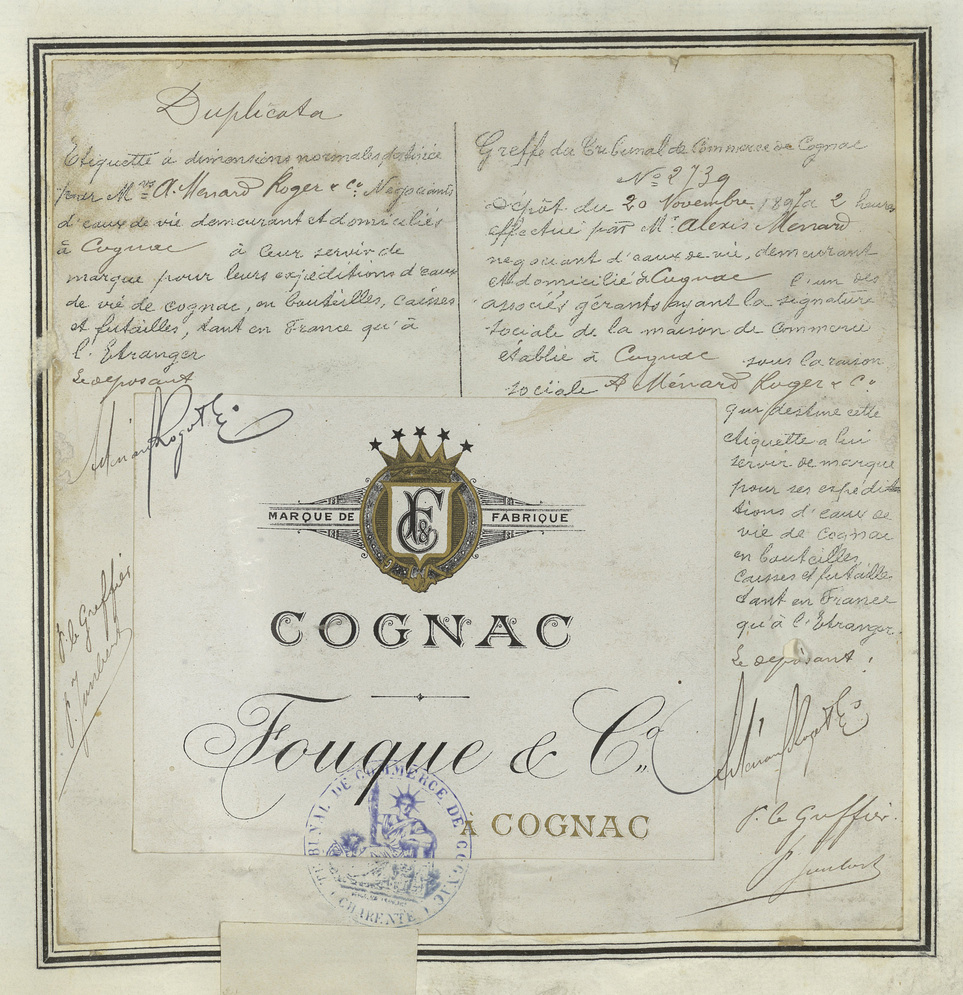 Duplicata
Etiquette à dimensions normales, destinée
pour M.rs A. Menard Roger & Co. Negociants
d'eaux de vie demeurant et domiciliés
à Cognac à leur servir de
marque pour leurs expéditions d'eaux
de vie de cognac, en bouteilles, caisses
et futailles, tant en France qu'à
l'Etranger
Le deposant
Menard Roger & Co.
P. le Greffier
Greffe du Tribunal de Commerce de Cognac
No 2739
Dépôt du 20 Novembre à 2 heures
effectué par Mr Alexis Menard
negociant d'eaux de vie, demeurant
et domicilié à Cognac l'un des
associés gérants ayant la signature
sociale de la maison de Commerce
établie à Cognac sous la raison
sociale A Ménard Roger & Co
qui destine cette
etiquette a lui
servir de marque
pour ses expédi-
tions d'eaux de
vie de Cognac
en bouteilles
caisses et futailles
tant en France
qu'à l'Etranger.
Le deposant
Menard Roger & Co
P. le Greffier.
MARQUE DE FABRIQUE
F & C
COGNAC
Fouque & Co.
À COGNAC
TRIBUNAL DE COMMERCE DE COGNAC
CHARENTE